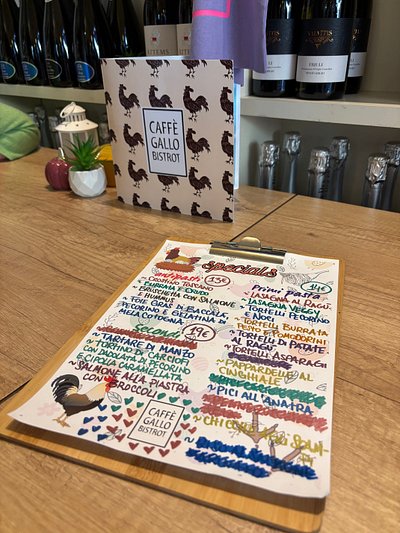 CAFFÈ
GALLO
BISTROT
FRIULI
specials
antipasti 13€
CROSTINO TOSCANO
BURRATA E CRUDO
BRUSCHETTA CON SALMONE
E HUMMUS
FOIE GRAS DI BACCALÀ,
PECORINO E GELATINA DI
MELA COTOGNA
Secondi 19€
TARTARE DI MANZO
TORTINO DI CARCIOFI
CON DADOLATA DI PECORINO
E CIPOLLA CARAMELLATA
SALMONE ALLA PIASTRA
CON BROCCOLI
CAFFÈ
GALLO
BISTROT
Primi Pasta 14€
LASAGNA AL RAGÙ
LASAGNA VEGGY
TORTELLI PECORINO
TORTELLI BURRATA
PESTO E POMODORINI
TORTELLI DI PATATE
AL RAGÙ
TORTELLI ASPARAGI
PAPPARDELLE AL
CINGHIALE
PICI ALL'ANATRA